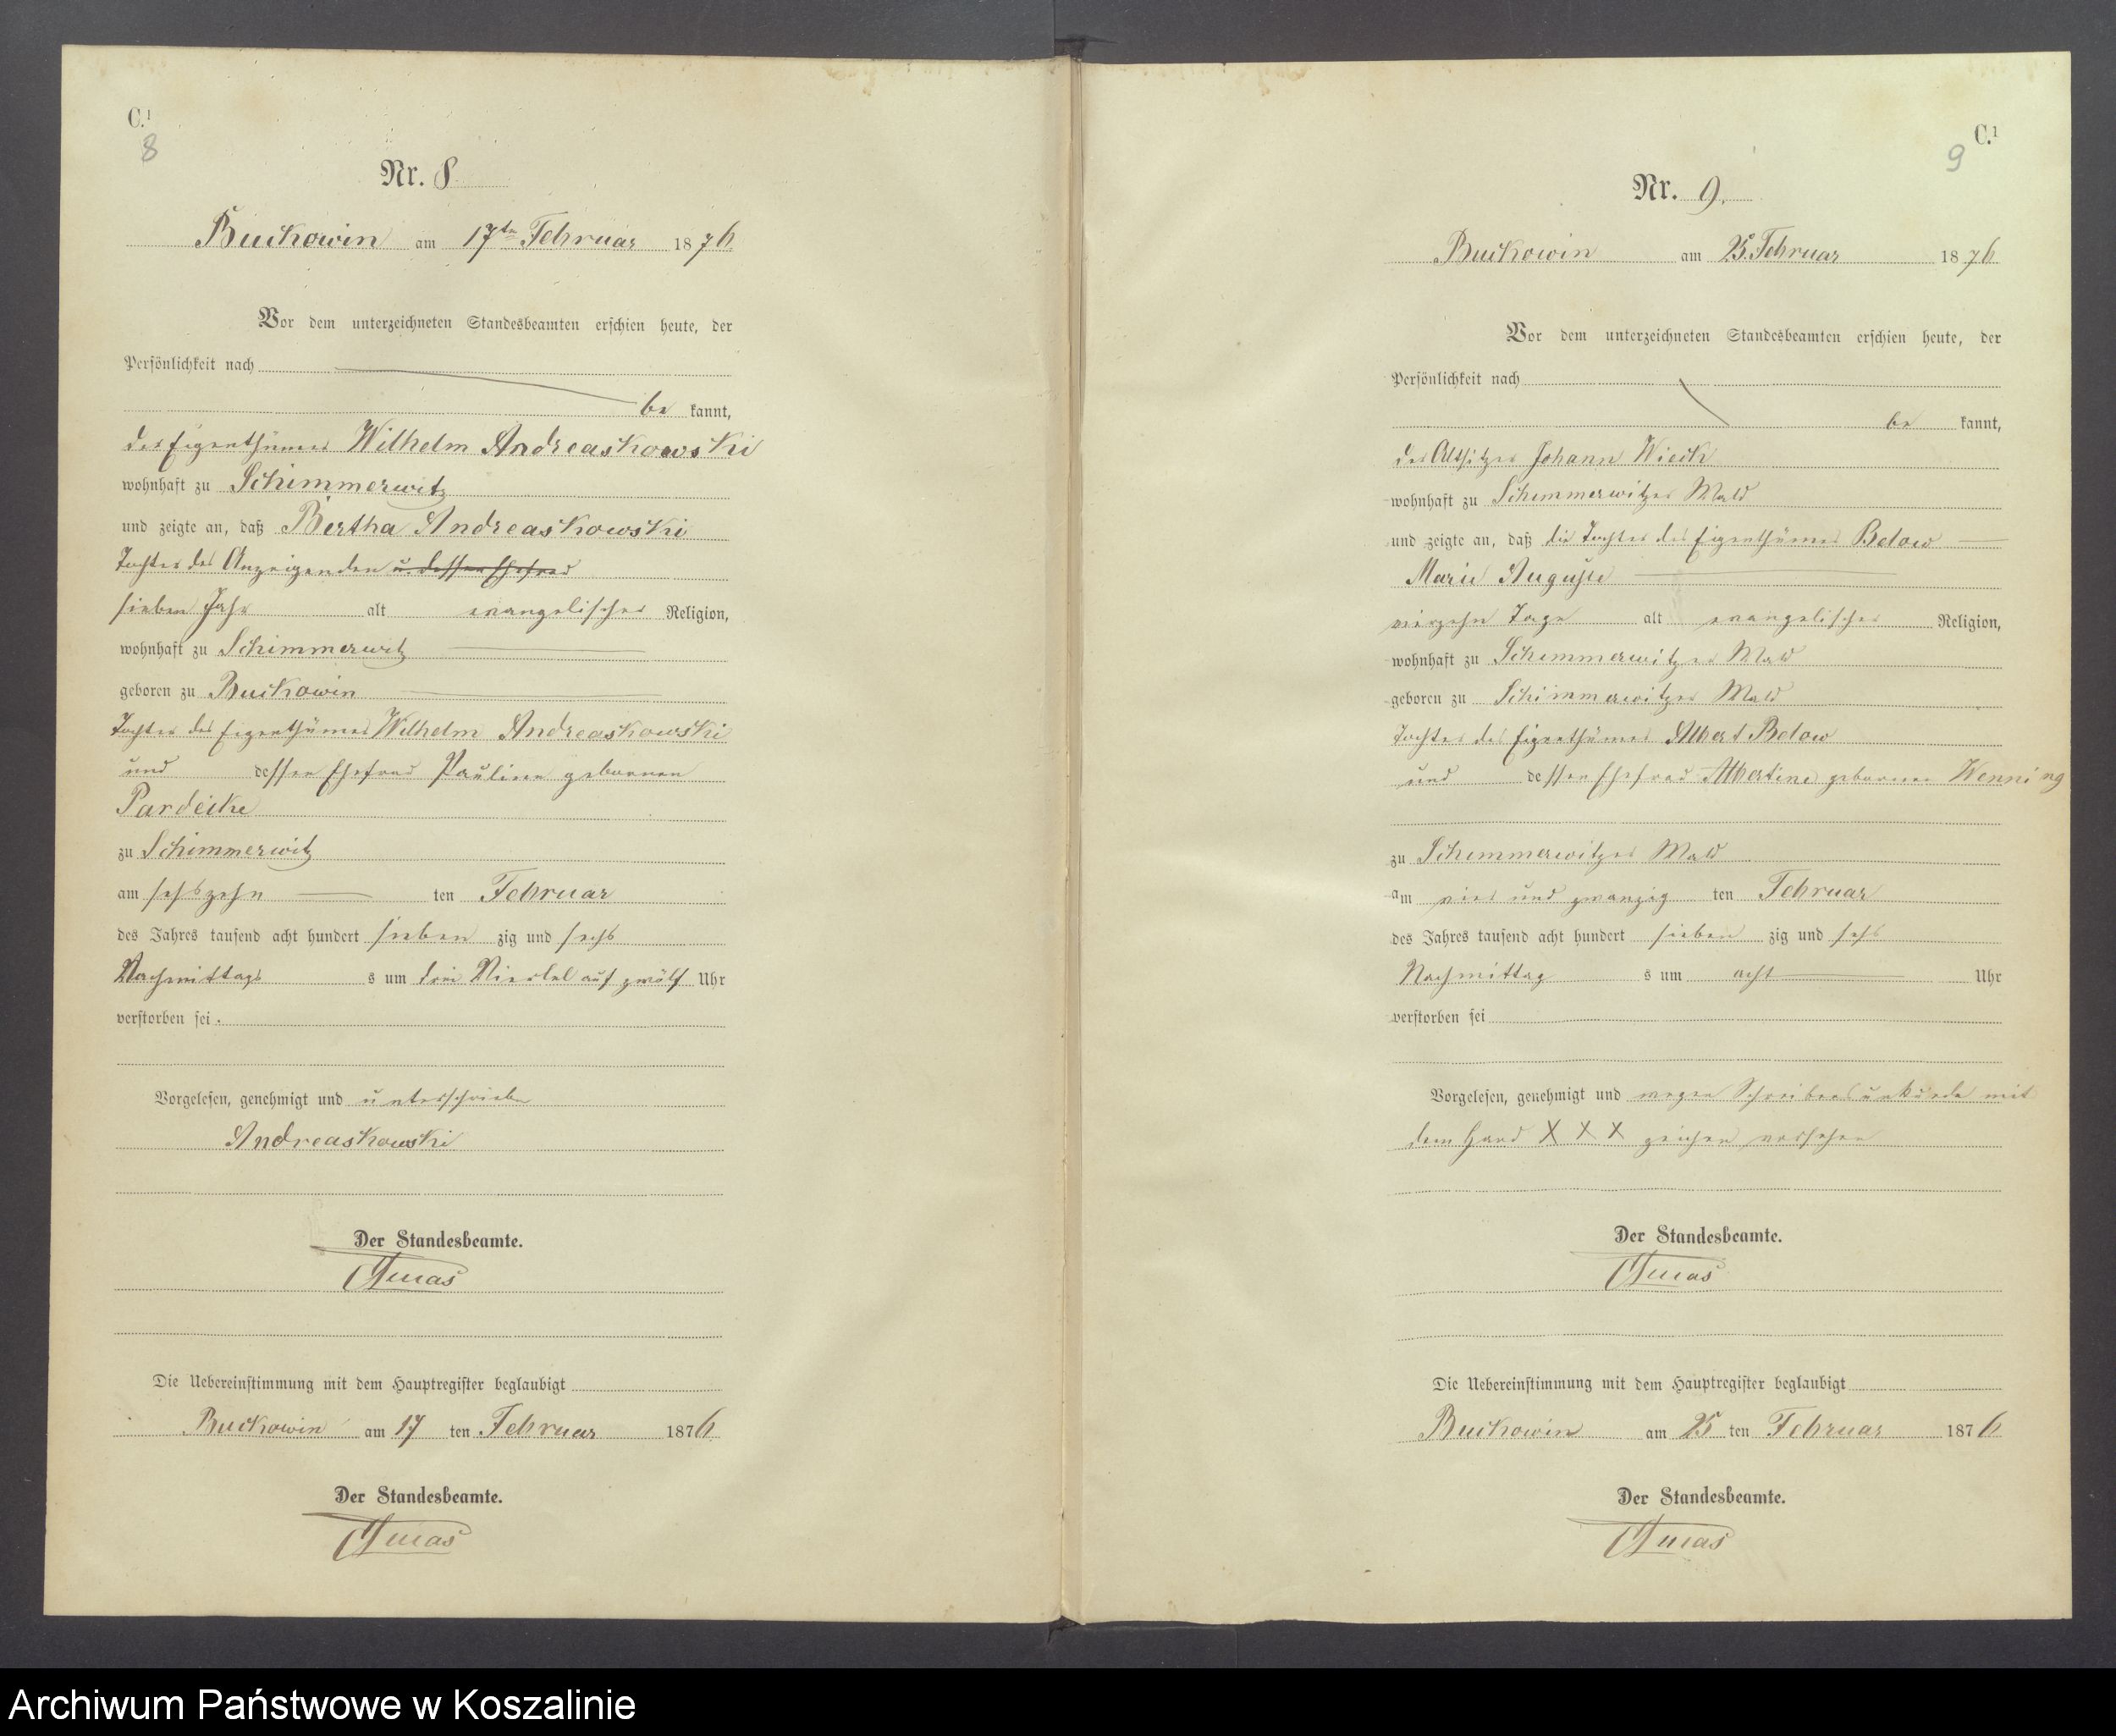 C.¹
8
Nr. 8
Buckowin am 17ten Februar 1876
Vor dem unterzeichneten Standesbeamten erschien heute, der
Persönlichkeit nach
be kannt,
der Eigenthümer Wilhelm Andreaskowski
wohnhaft zu Schimmerwitz
und zeigte an, daß Bertha Andreaskowski
Tochter des Anzeigenden u. dessen Ehefrau
sieben Jahr alt evangelischer Religion,
wohnhaft zu Schimmerwitz
geboren zu Buckowin
Tochter des Eigenthümer Wilhelm Andreaskowski
und dessen Ehefrau Pauline geborenen
Pardeike
zu Schimmerwitz
am sechszehn ten Februar
des Jahres tausend acht hundert sieben zig und sechs
Nachmittags s um drei Viertel auf zwölf Uhr
verstorben sei.
Vorgelesen, genehmigt und unterschrieben
Andreaskowski
Der Standesbeamte.
Die Uebereinstimmung mit dem Hauptregister beglaubigt
Buckowin am 17 ten Februar 1876
Der Standesbeamte.
C.¹
9
Nr. 9.
Buckowin am 25. Februar 1876
Vor dem unterzeichneten Standesbeamten erschien heute, der
Persönlichkeit nach
be kannt,
der Altsitzer Johann Wieck
wohnhaft zu Schimmerwitzer Wald
und zeigte an, daß die Tochter des Eigenthümer Below
Marie Auguste
vierzehn Tage alt evangelischer Religion,
wohnhaft zu Schimmerwitzer Wald
geboren zu Schimmerwitzer Wald
Tochter des Eigenthümer Albert Below
und dessen Ehefrau Albertine geborenen Wenning
zu Schimmerwitzer Wald
am vier und zwanzig ten Februar
des Jahres tausend acht hundert sieben zig und sechs
Nachmittag s um acht Uhr
verstorben sei
Vorgelesen, genehmigt und wegen Schreibensunkunde mit
dem Hand X X X zeichen versehen
Der Standesbeamte.
Die Uebereinstimmung mit dem Hauptregister beglaubigt
Buckowin am 25 ten Februar 1876
Der Standesbeamte.
Archiwum Państwowe w Koszalinie